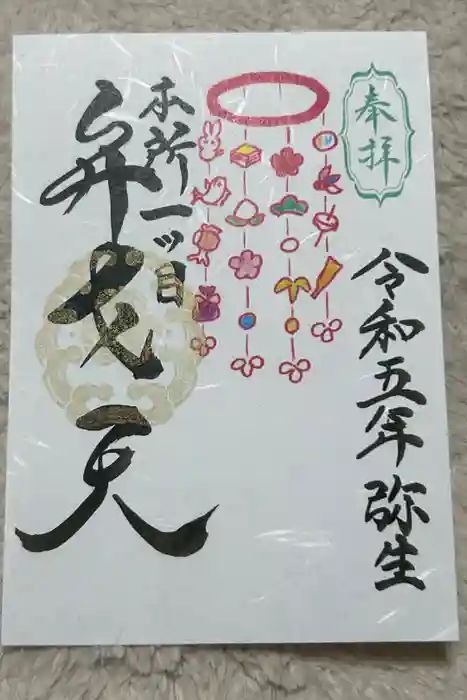 奉拝
令和五年弥生
本所一ツ目
弁戈天